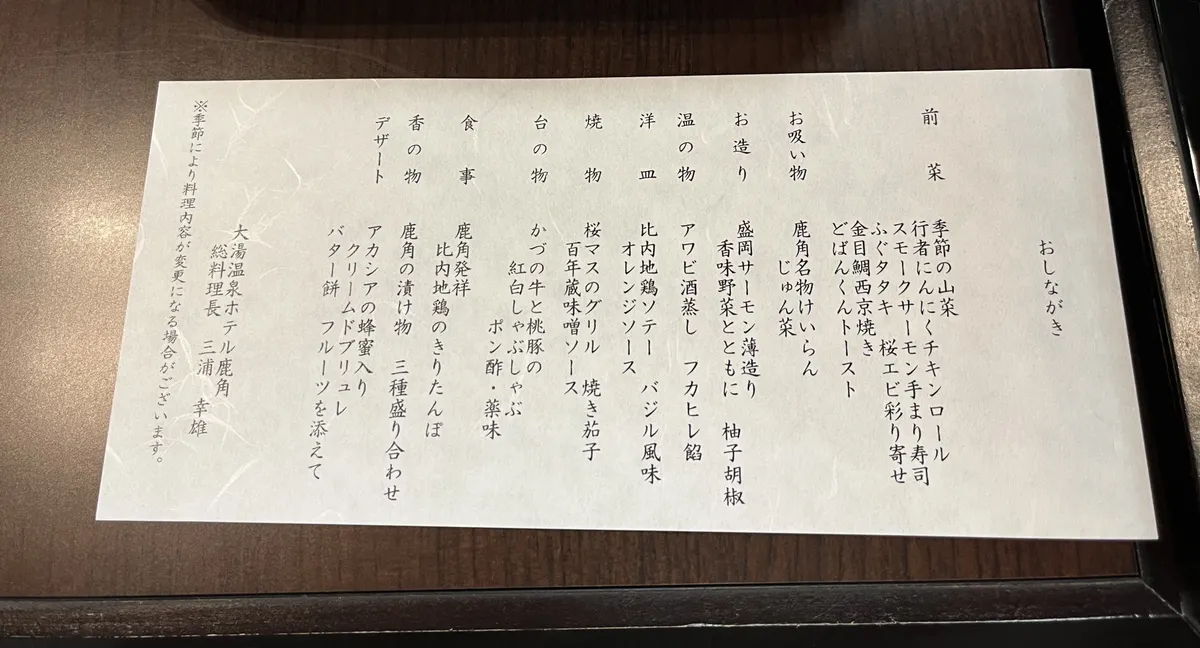 おしながき
前菜
季節の山菜
行者にんにくチキンロール
スモークサーモン手まり寿司
ふぐタタキ　桜エビ彩り寄せ
金目鯛西京焼き
どばんくんトースト
お吸い物
鹿角名物けいらん
じゅん菜
お造り
盛岡サーモン薄造り
香味野菜とともに　柚子胡椒
温の物
アワビ酒蒸し　フカヒレ餡
洋皿
比内地鶏ソテー　バジル風味
オレンジソース
焼物
桜マスのグリル　焼き茄子
百年蔵味噌ソース
台の物
かづの牛と桃豚の
紅白しゃぶしゃぶ
ポン酢・薬味
食事
鹿角発祥
比内地鶏のきりたんぽ
香の物
鹿角の漬け物　三種盛り合わせ
デザート
アカシアの蜂蜜入り
クリームドブリュレ
バター餅　フルーツを添えて
大湯温泉ホテル鹿角
総料理長　三浦　幸雄
※季節により料理内容が変更になる場合がございます。